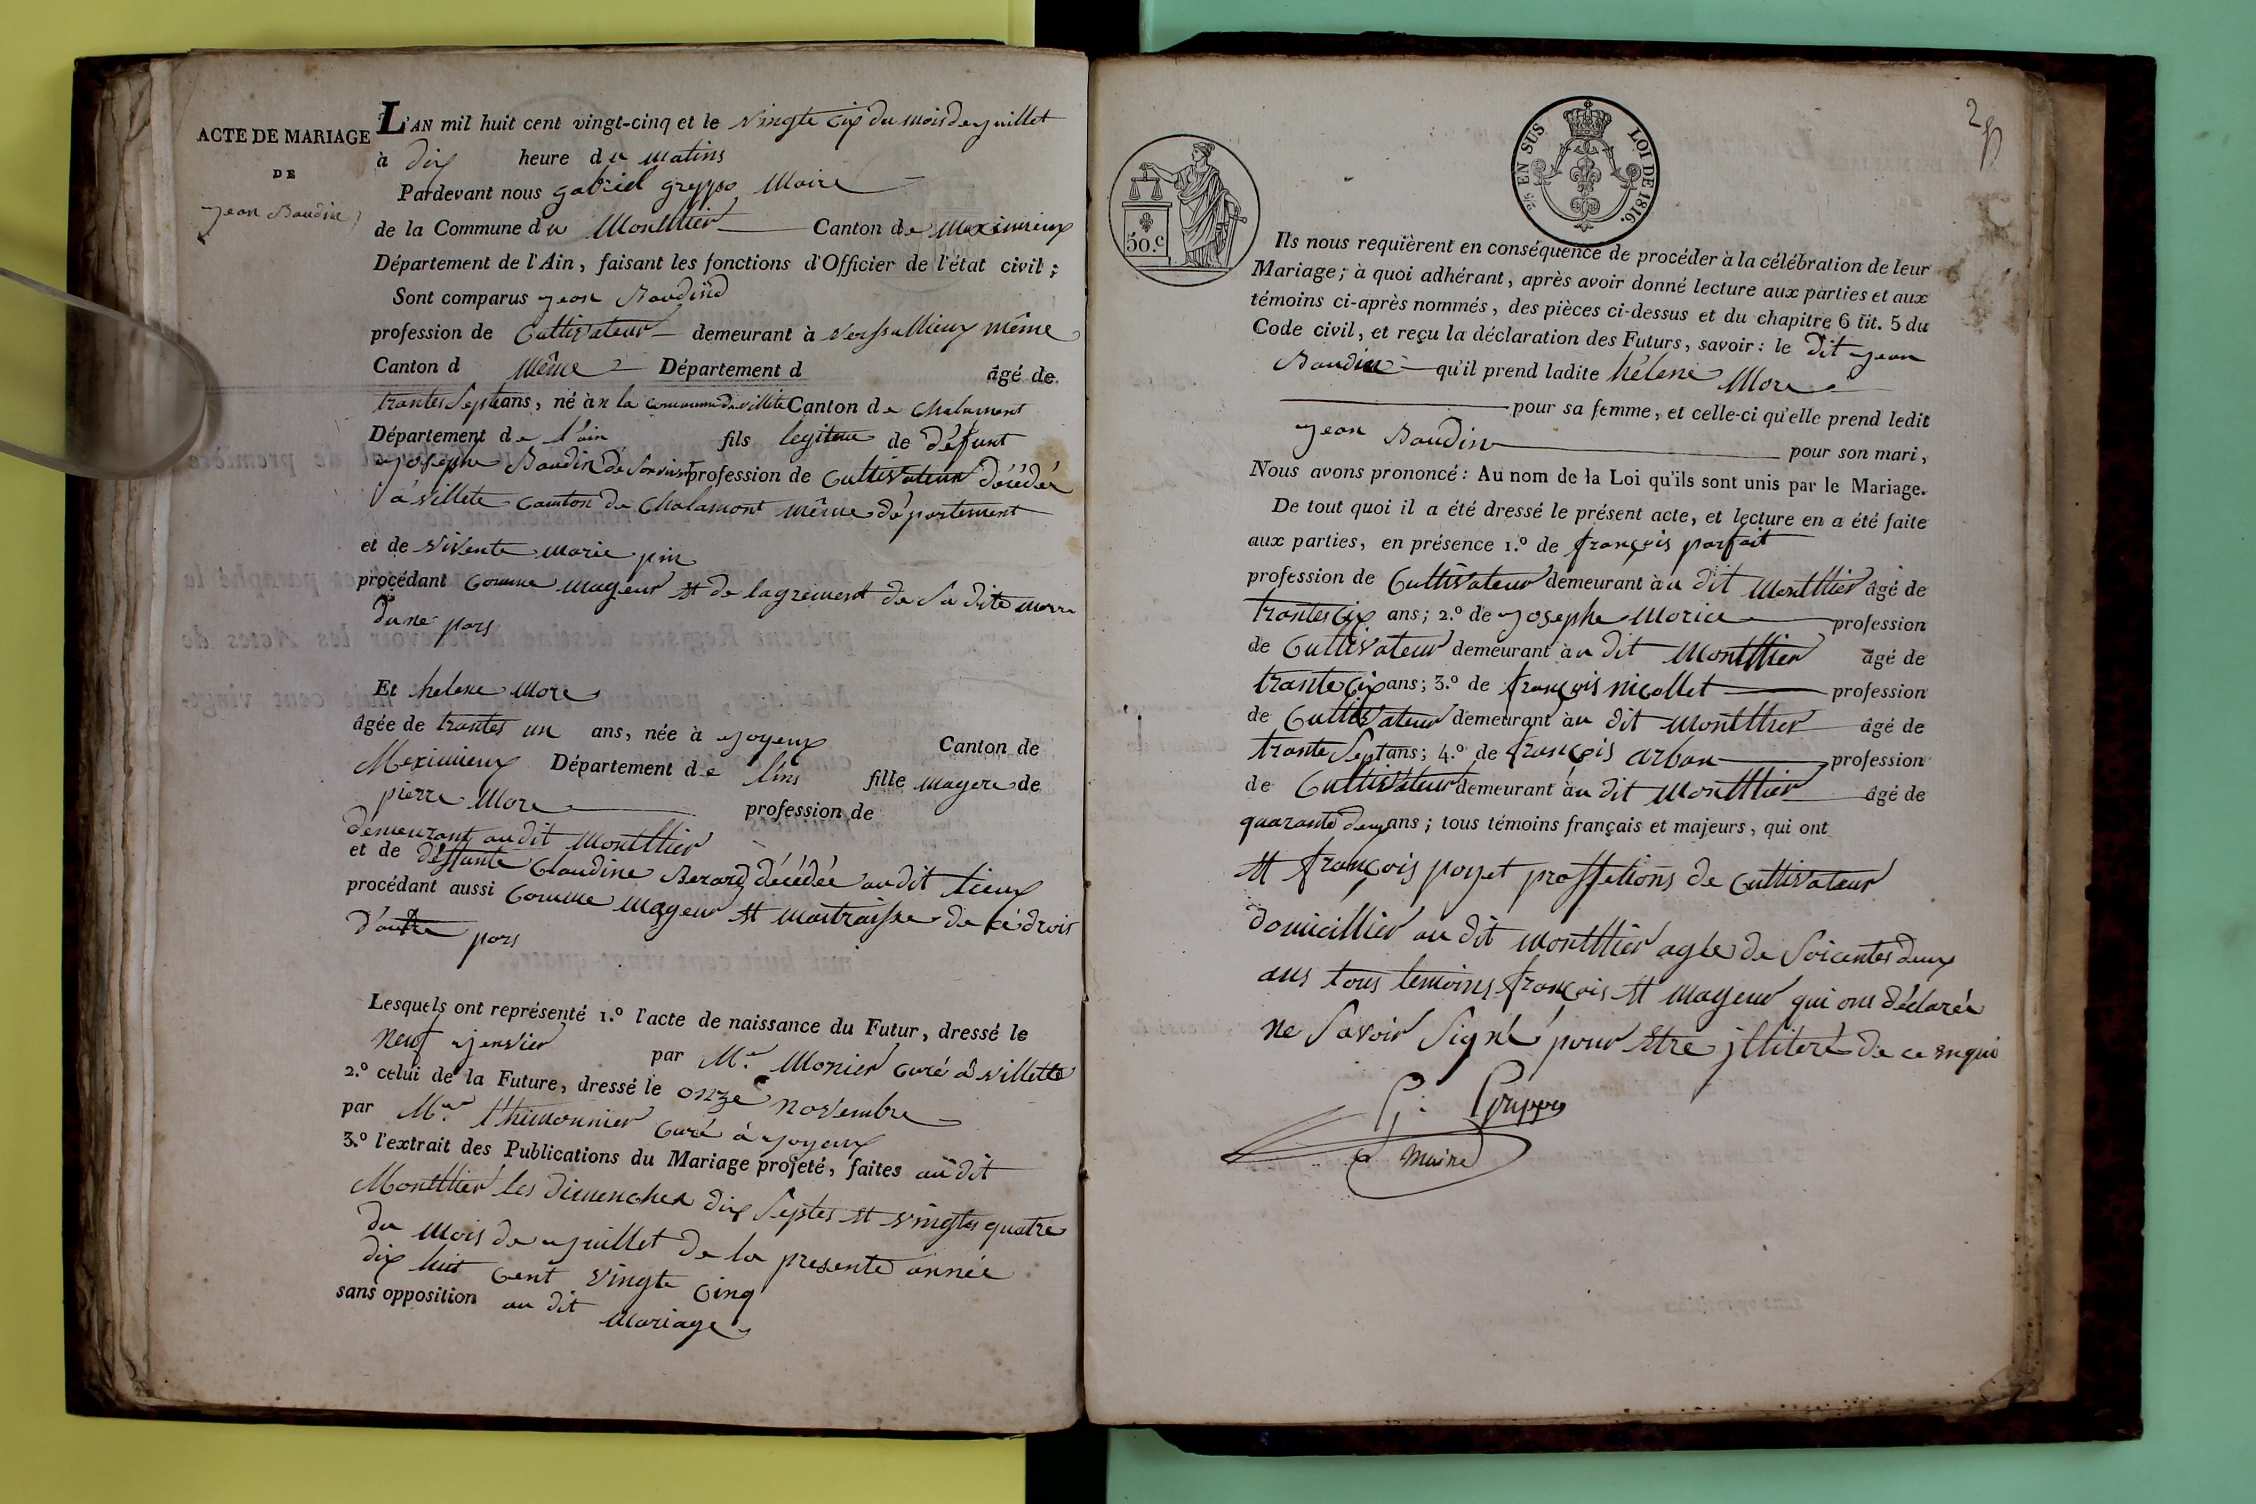 ACTE DE MARIAGE
DE
jean Baudin
L'AN mil huit cent vingt-cinq et le vingte cix du mois de juillet
à dix heure du matins
Pardevant nous gabriel greppo Maire
de la Commune du Monttlier Canton de Meximieux
Département de l'Ain, faisant les fonctions d'Officier de l'état civil;
Sont comparus jean Baudin
profession de Cultivateur demeurant à Verssallieux même
Canton d même Département d âgé de
trantes Septans, né à la commune de villete Canton de Chalamont
Département de l'ain fils legitime de défunt
josephe Baudin de Son vivant profession de Cultivateur décédér
à villete canton de Chalamont même département
et de vivente marie pin
procédant comme mageur et de lagrement de Sa dite merre
dune pars
Et helene More
âgée de trantes un ans, née à joyeux Canton de
Meximieux Département de l'ins fille magere de
pierre More profession de
démeurant au dit Monttlier
et de deffunte Claudine Berard décédée au dit lieux
procédant aussi comme mageur et maitraisse de cé drois
d'autre pars
Lesquels ont représenté 1.º l'acte de naissance du Futur, dressé le
neuf jenvier par M.r Monier curé à villette
2.º celui de la Future, dressé le onze novembre
par M.r thimonnier Curé à joyeux
3.º l'extrait des Publications du Mariage projeté, faites au dit
Monttlier les dimenches dix Septes et vingtes quatre
du mois de juillet de la presente année
dix huit cent vingte cinq
sans opposition au dit mariage
2
50.c
EN SUS LOI DE 1816.
Ils nous requièrent en conséquence de procéder à la célébration de leur
Mariage; à quoi adhérant, après avoir donné lecture aux parties et aux
témoins ci-après nommés, des pièces ci-dessus et du chapitre 6 tit. 5 du
Code civil, et reçu la déclaration des Futurs, savoir: le dit jean
Baudin qu'il prend ladite hélene More
pour sa femme, et celle-ci qu'elle prend ledit
jean Baudin pour son mari,
Nous avons prononcé: Au nom de la Loi qu'ils sont unis par le Mariage.
De tout quoi il a été dressé le présent acte, et lecture en a été faite
aux parties, en présence 1.º de françois parfait
profession de Cultivateur demeurant àu dit Monttlier âgé de
trantes cix ans; 2.º de josephe Morice profession
de Cultivateur demeurant àu dit Monttlier âgé de
trante cix ans; 3.º de françois nicollet profession
de Cultivateur demeurant àu dit Monttlier âgé de
trante Sept ans; 4.º de françois arban profession
de Cultivateur demeurant àu dit Monttlier âgé de
quarante deux ans; tous témoins français et majeurs, qui ont
et françois poyet proffetions de Cultivateur
domicillier au dit Monttlier agée de Soicentes deux
ans tous temoins françois et mageur qui ont déclarér
ne Savoir Signé pour etre jlliteré de ce enquis
G: Greppo
maire